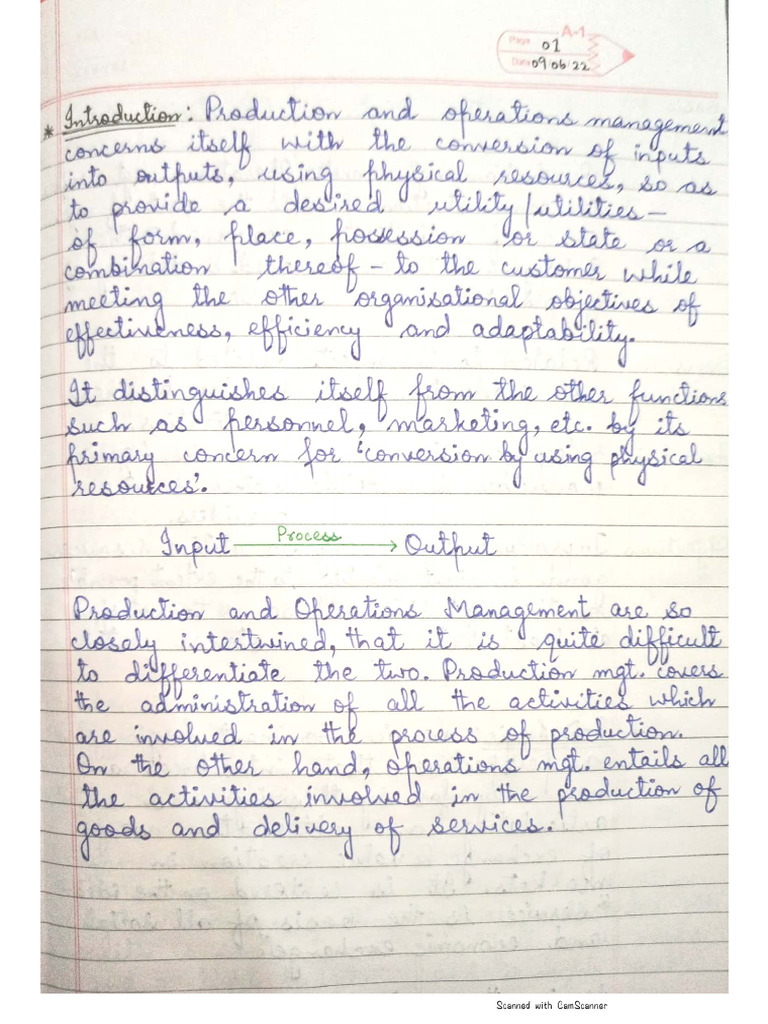 A-1
Page 01
Date 09/06/22
* Introduction: Production and operations management
concerns itself with the conversion of inputs
into outputs, using physical resources, so as
to provide a desired utility/utilities-
of form, place, possession or state or a
combination thereof - to the customer while
meeting the other organisational objectives of
effectiveness, efficiency and adaptability.
It distinguishes itself from the other functions
such as personnel, marketing, etc. by its
primary concern for 'conversion by using physical
resources'.
Input Process Output
Production and Operations Management are so
closely intertwined, that it is quite difficult
to differentiate the two. Production mgt. covers
the administration of all the activities which
are involved in the process of production.
On the other hand, operations mgt. entails all
the activities involved in the production of
goods and delivery of services.
Scanned with CamScanner